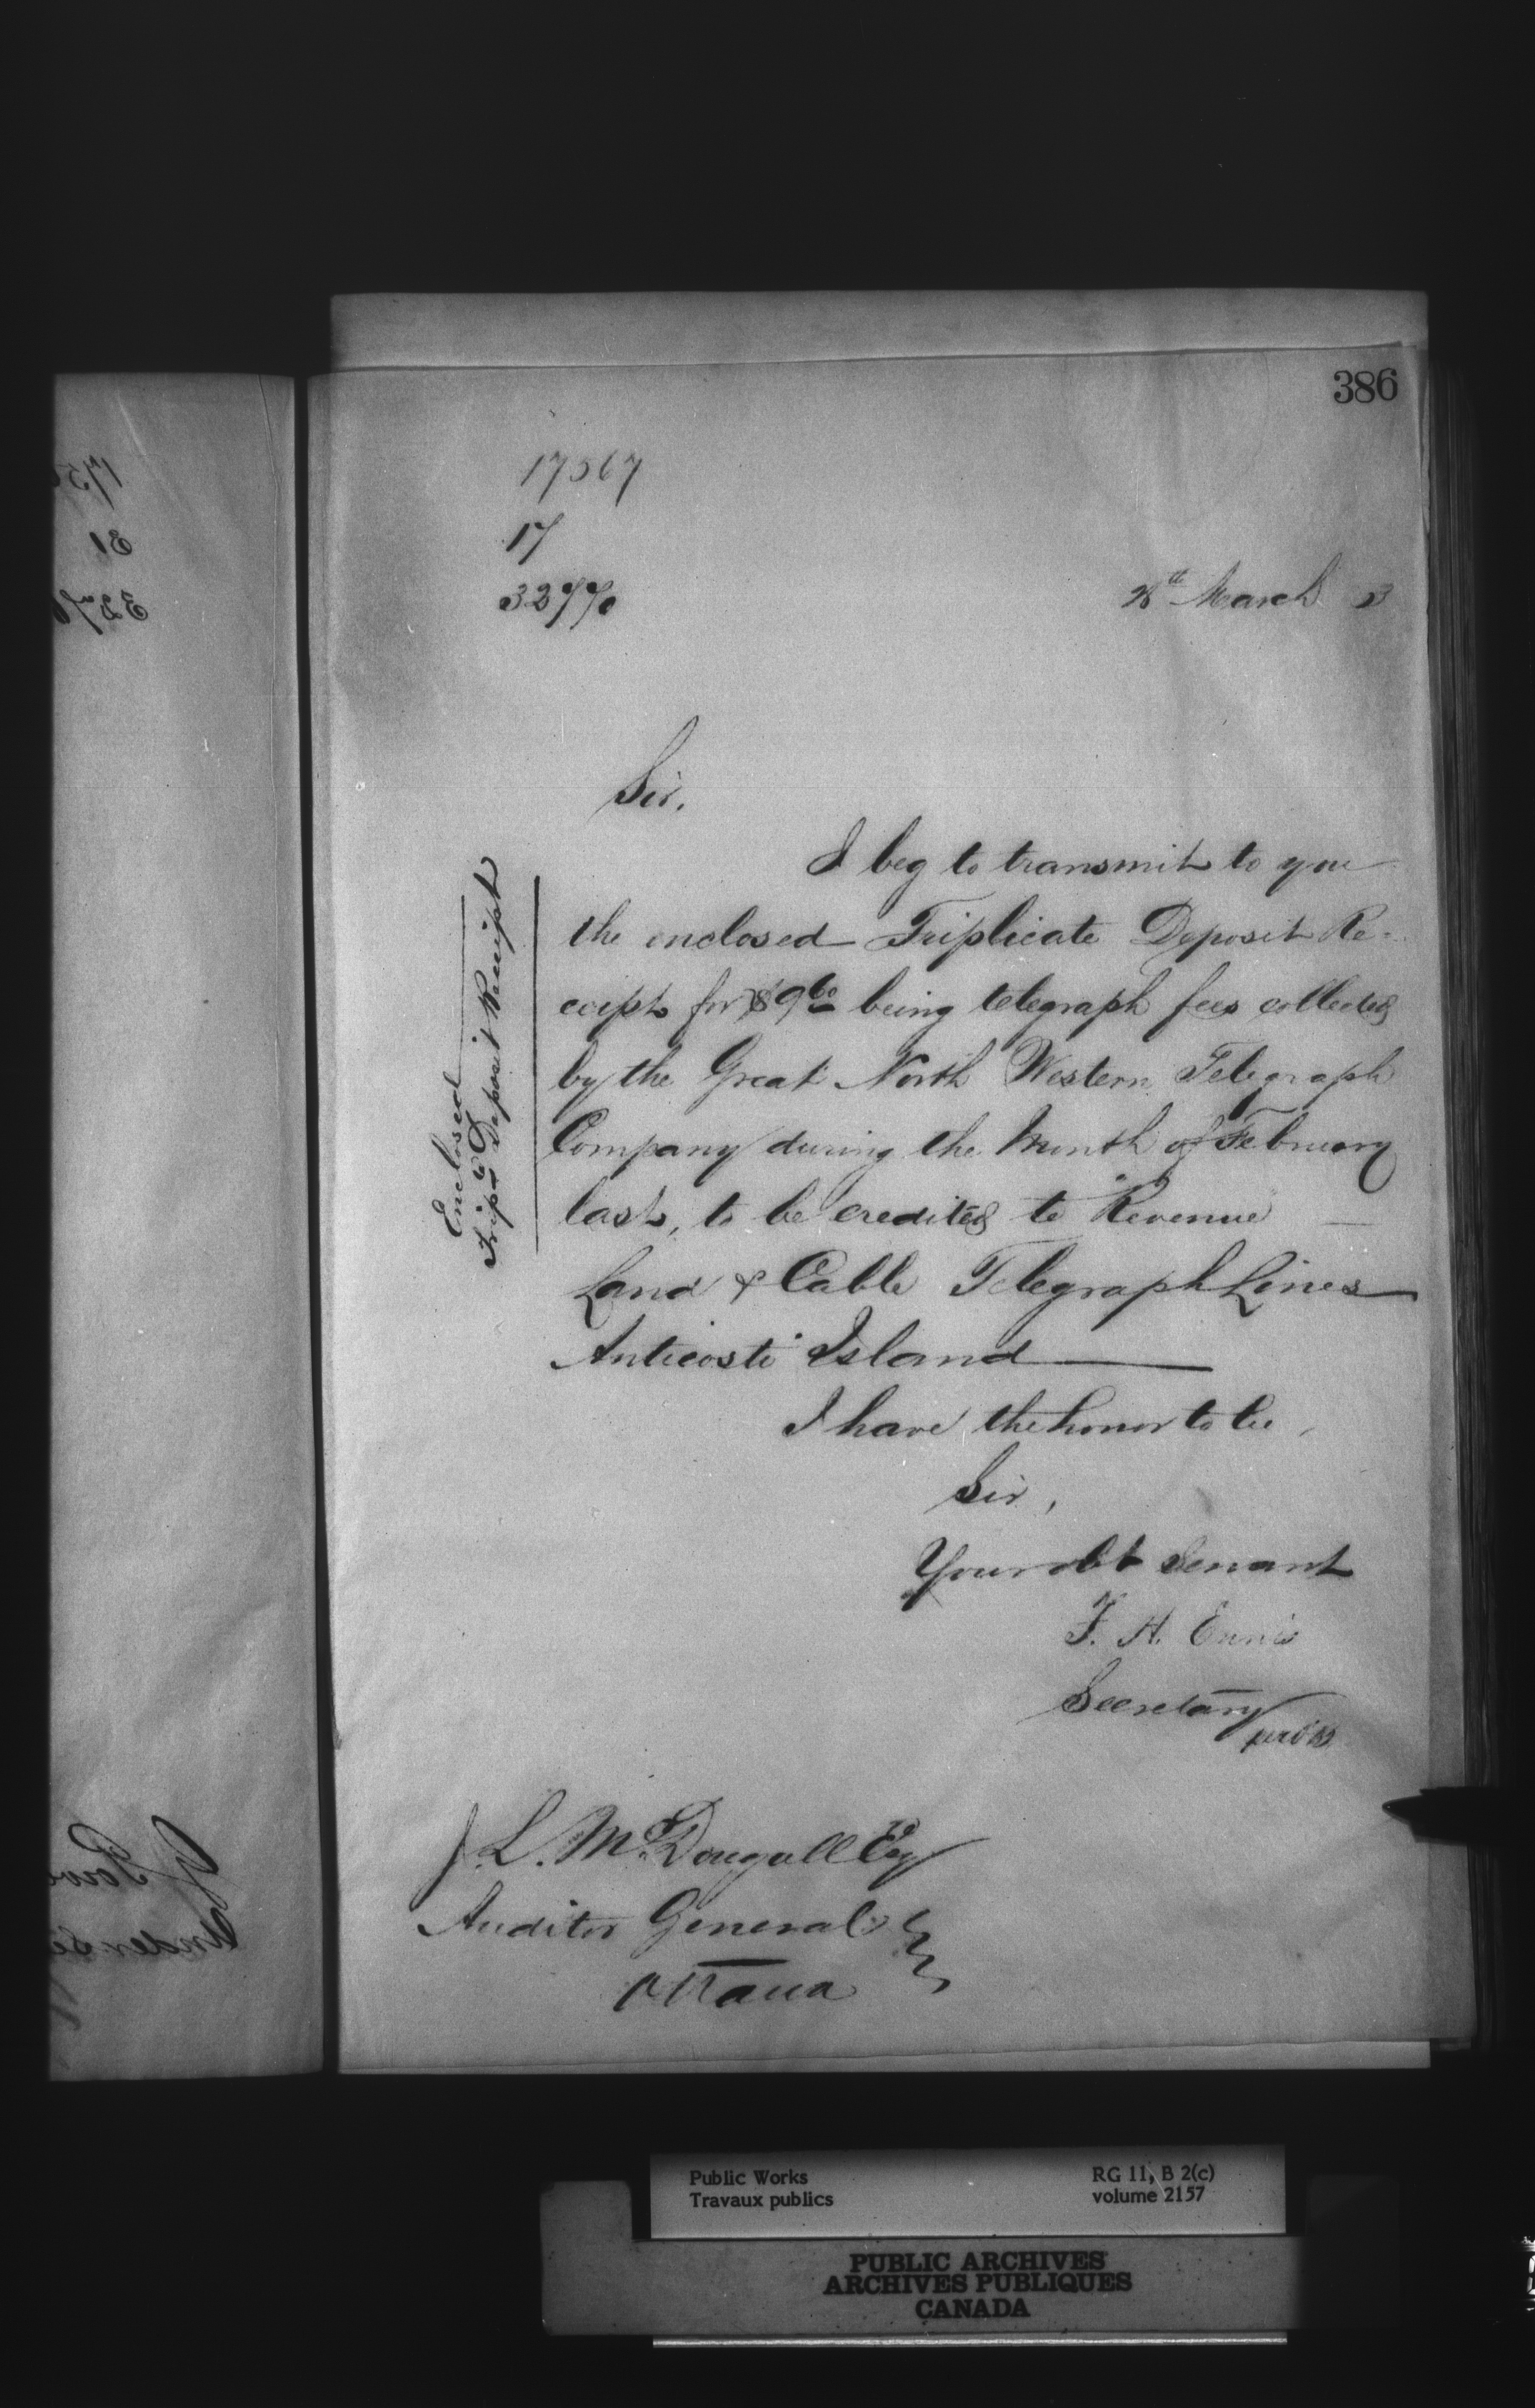 386
17567
17
32770
28th March 3
Sir,
I beg to transmit to you
the enclosed Triplicate Deposit Re-
ceipt for $9 60 being telegraph fees collected
by the Great North Western Telegraph
Company during the Month of February
last, to be credited to Revenue —
Land & Cable Telegraph Lines
Anticosti Island —
Enclosed
Trip te Deposit Receipt
I have the honor to be,
Sir,
Your obt Servant
F. H. Ennis
Secretary
J. L. McDougall Esq
Auditor General
Ottawa
Public Works
Travaux publics
RG 11, B 2(c)
volume 2157
PUBLIC ARCHIVES
ARCHIVES PUBLIQUES
CANADA